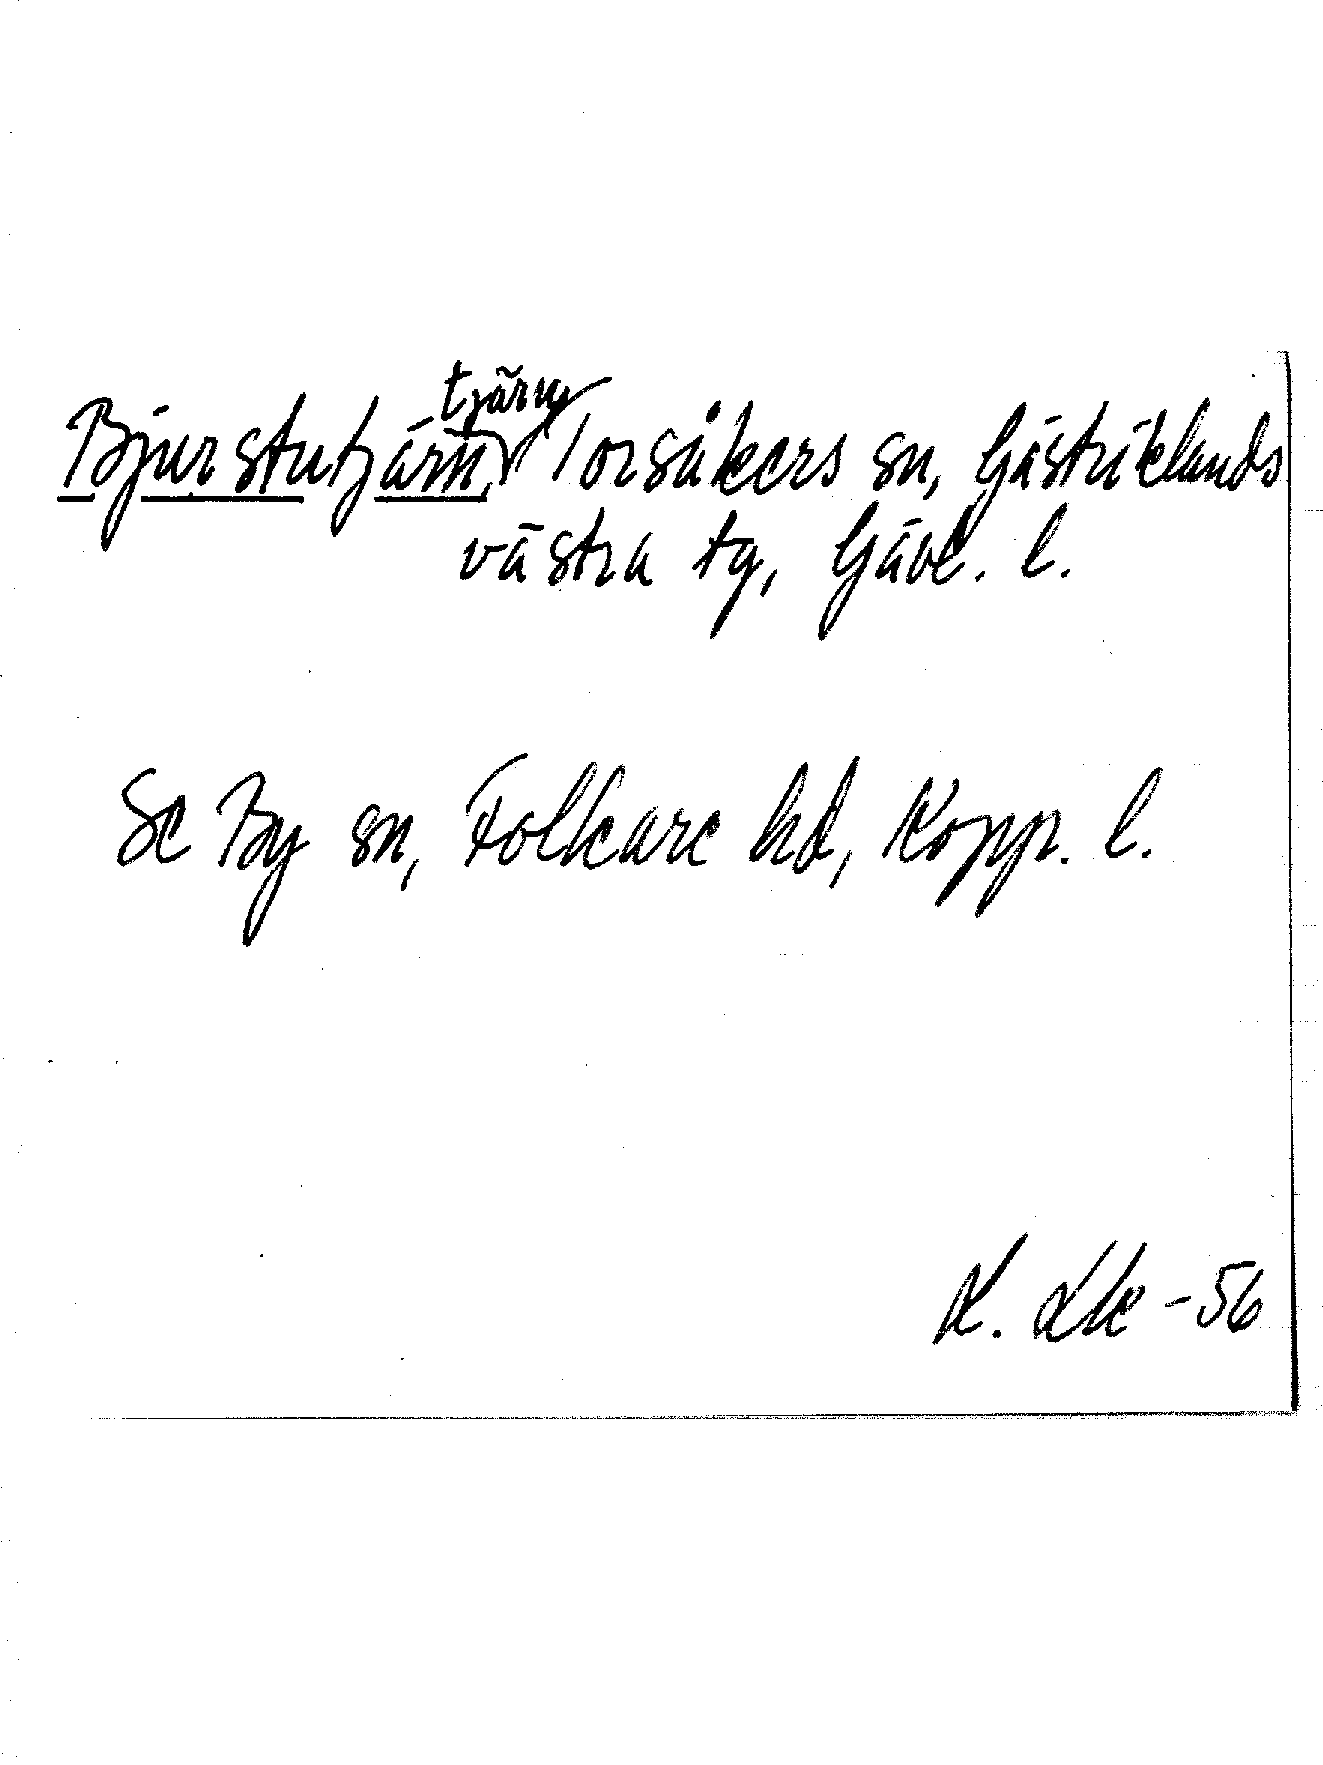 Bjurstutjärn, tjärn, Torsåkers sn, Gästriklands
västra tg, Gävl. l.
Se By sn, Folkare hd, Kopp. l.
-56